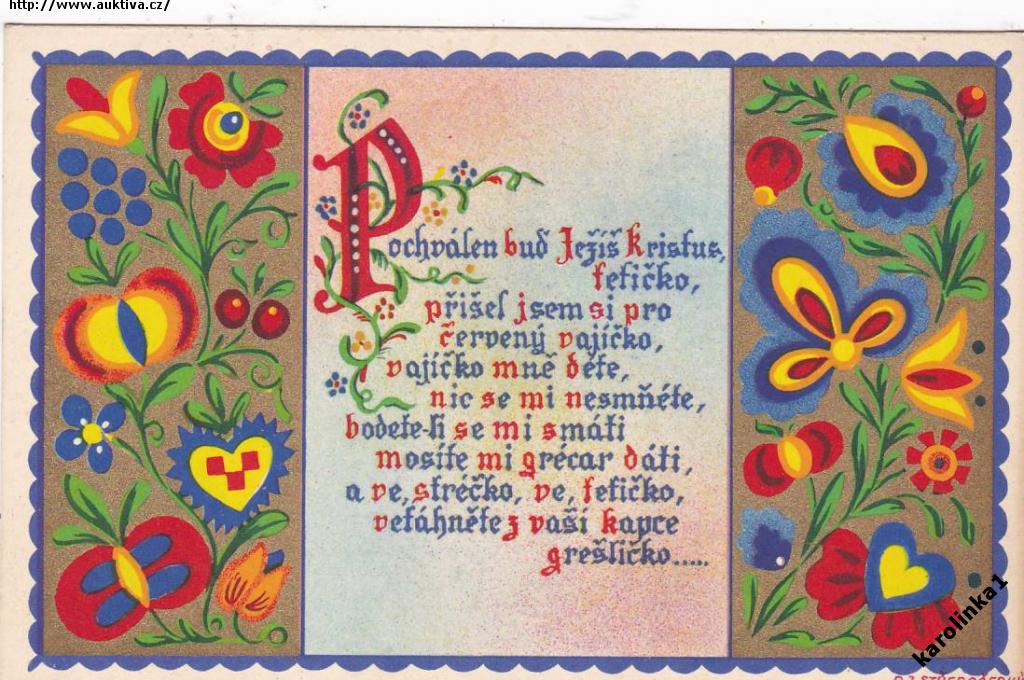 http://www.auktiva.cz/
Pochválen buď Ježíš Kristus,
tetičko,
přišel jsem si pro
červený vajíčko,
vajíčko mně déte,
nic se mi nesmňéte,
bodete-li se mi smáti
mosíte mi grécar dáti,
a ve, stréčko, ve, tetičko,
vetáhněte z vaší kapce
grešličko.....
karolinka1